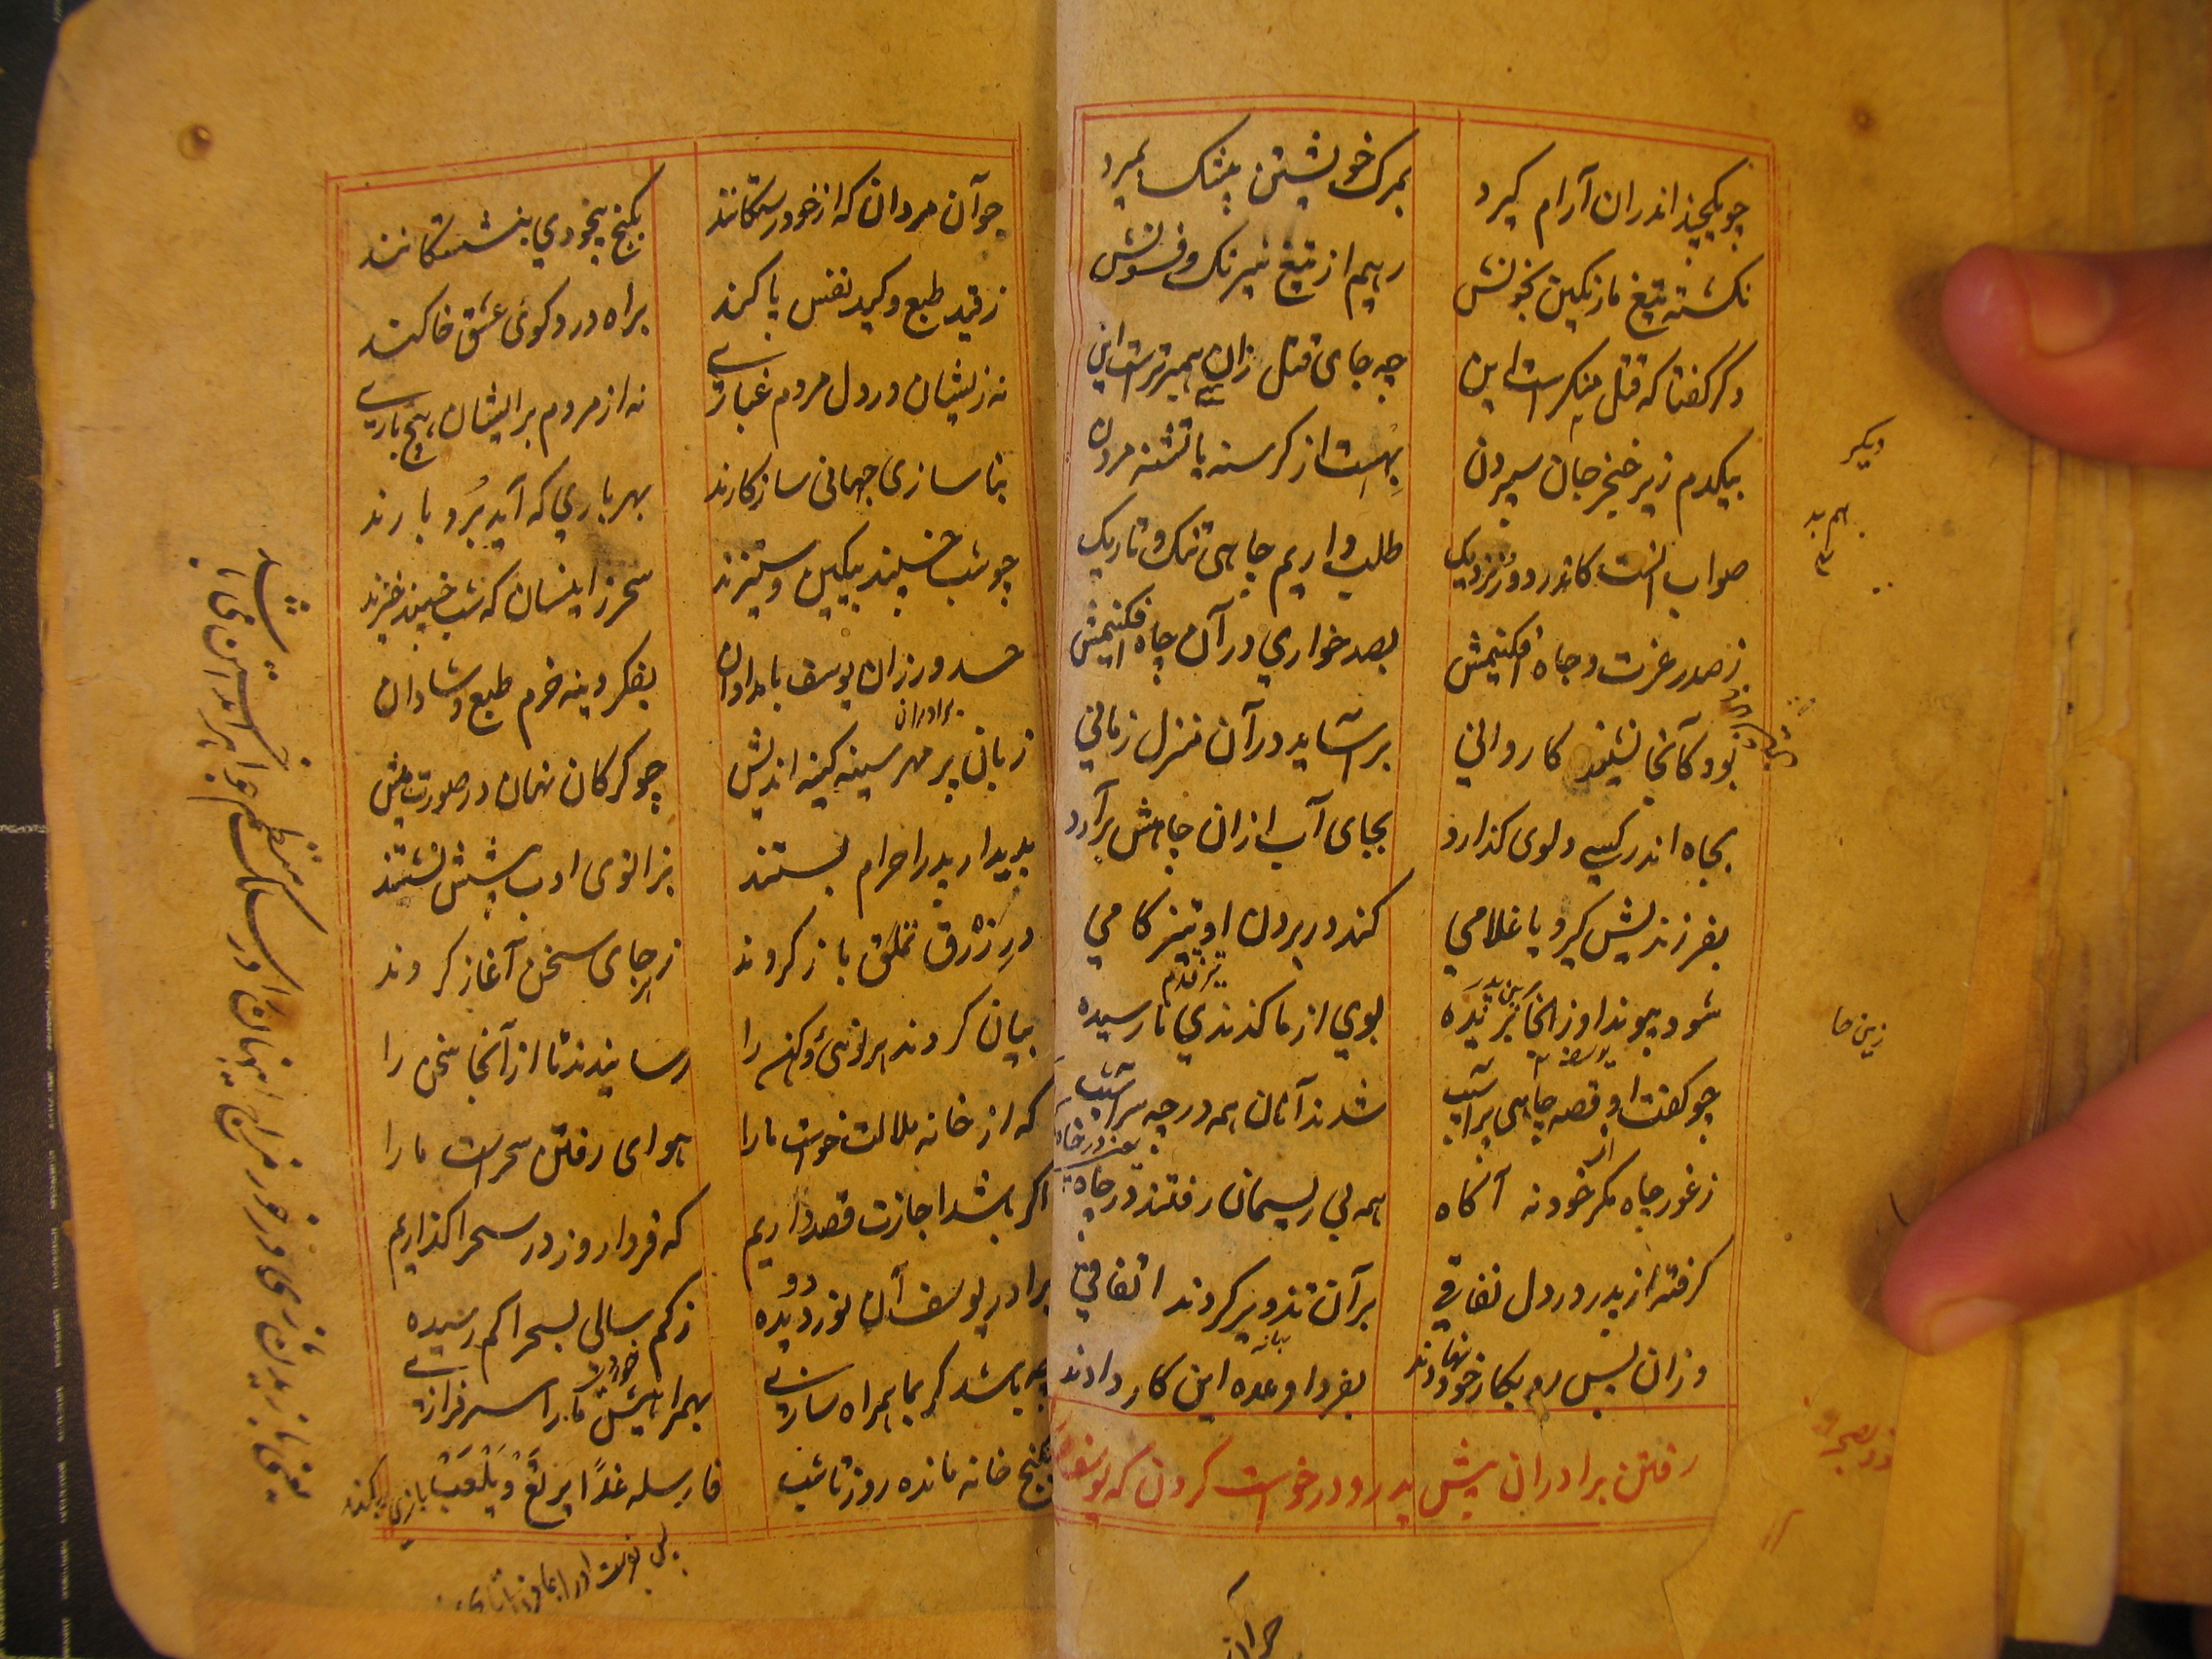 چو یکچند اندران آرام گیرد بمرگ خویشتن بیشک بمیرد
نگشته تیغ ما رنگین بخونش رهیم از تیغ نیرنگ و فسونش
دگر گفتا که قتل منکرست این چه جای قتل زان هم بدترست این
بیکدم زیر خنجر جان سپردن بهست از گرسنه یا تشنه مردن
صواب آنست کاندر دور و نزدیک طلب داریم چاهی تنگ و تاریک
ز صدر عزت و جاه افکنیمش بصد خواری در آن چاه افکنیمش
بود کآنجا نشیند کاروانی برآساید در آن منزل زمانی
بچاه اندر کسی دلوی گذارد بجای آب ازان چاهش برآرد
بفرزندیش گیرد یا غلامی کند در بردن او تیز گامی
شود پیوند او زانجا بریده بوی از ما گزندی نارسیده
چو گفت او قصه چاهی پر آسیب شدند آنان همه در چه سرآشیب
ز غور چاه مکر خود نه آگاه همه بی ریسمان رفتند در چاه
گرفته از پدر در دل نفاقی بر آن تزویر کردند اتفاقی
وزان پس رو بکار خود نهادند بفردا وعده این کار دادند
رفتن برادران پیش پدر و درخواست کردن که یوسف
دیگر
تیز قدم
چو آن مردان که از خود رستگانند بکنج بیخودی بنشستگانند
ز قید طبع و کید نفس پاکند براه درد و کوی عشق خاکند
نه زیشان در دل مردم غباری نه از مردم برایشان هیچ باری
بناسازی جهانی سازگارند بهر باری که آید بردبارند
چو شب خسپند بیکین و ستیزند سحر زانسان که شب خسپند خیزند
حسد ورزان یوسف بامدادان بفکر دینه خرم طبع و شادان
برادران
زبان پر مهر سینه کینه اندیش چو گرگان نهان در صورت میش
بدیدار پدر احرام بستند بزانوی ادب پیشش نشستند
در زرق و تملق باز کردند ز هر جای سخن آغاز کردند
بیان کردند هر نوی و کهن را رسانیدند تا آنجا سخن را
که از خانه ملالت خواست ما را هوای رفتن صحراست ما را
اگر باشد اجازت قصد داریم که فردا روز در صحرا گذاریم
برادر یوسف آن نور دو دیده ز کم سالی بصحرا کم رسیده
چه باشد گر بما همراه سازی بهمراهیش ما را سرفرازی
بکنج خانه مانده روز تا شب فارسله غدا یرتع و یلعب